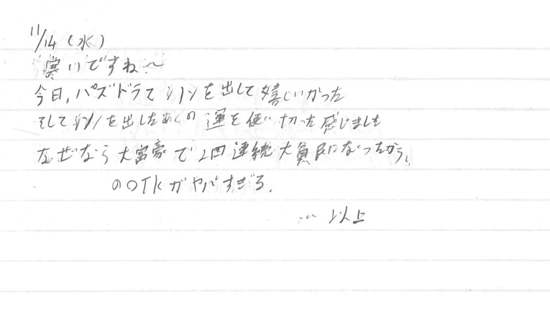 11/14(水)
寒いですね〜
今日,パズドラでシノンを出して嬉しいかった
そしてシノンを出したあくの運を使い切った感じました
なぜなら大富豪で2回連続大貧民になったから,
がヤバすぎる.
… 以上